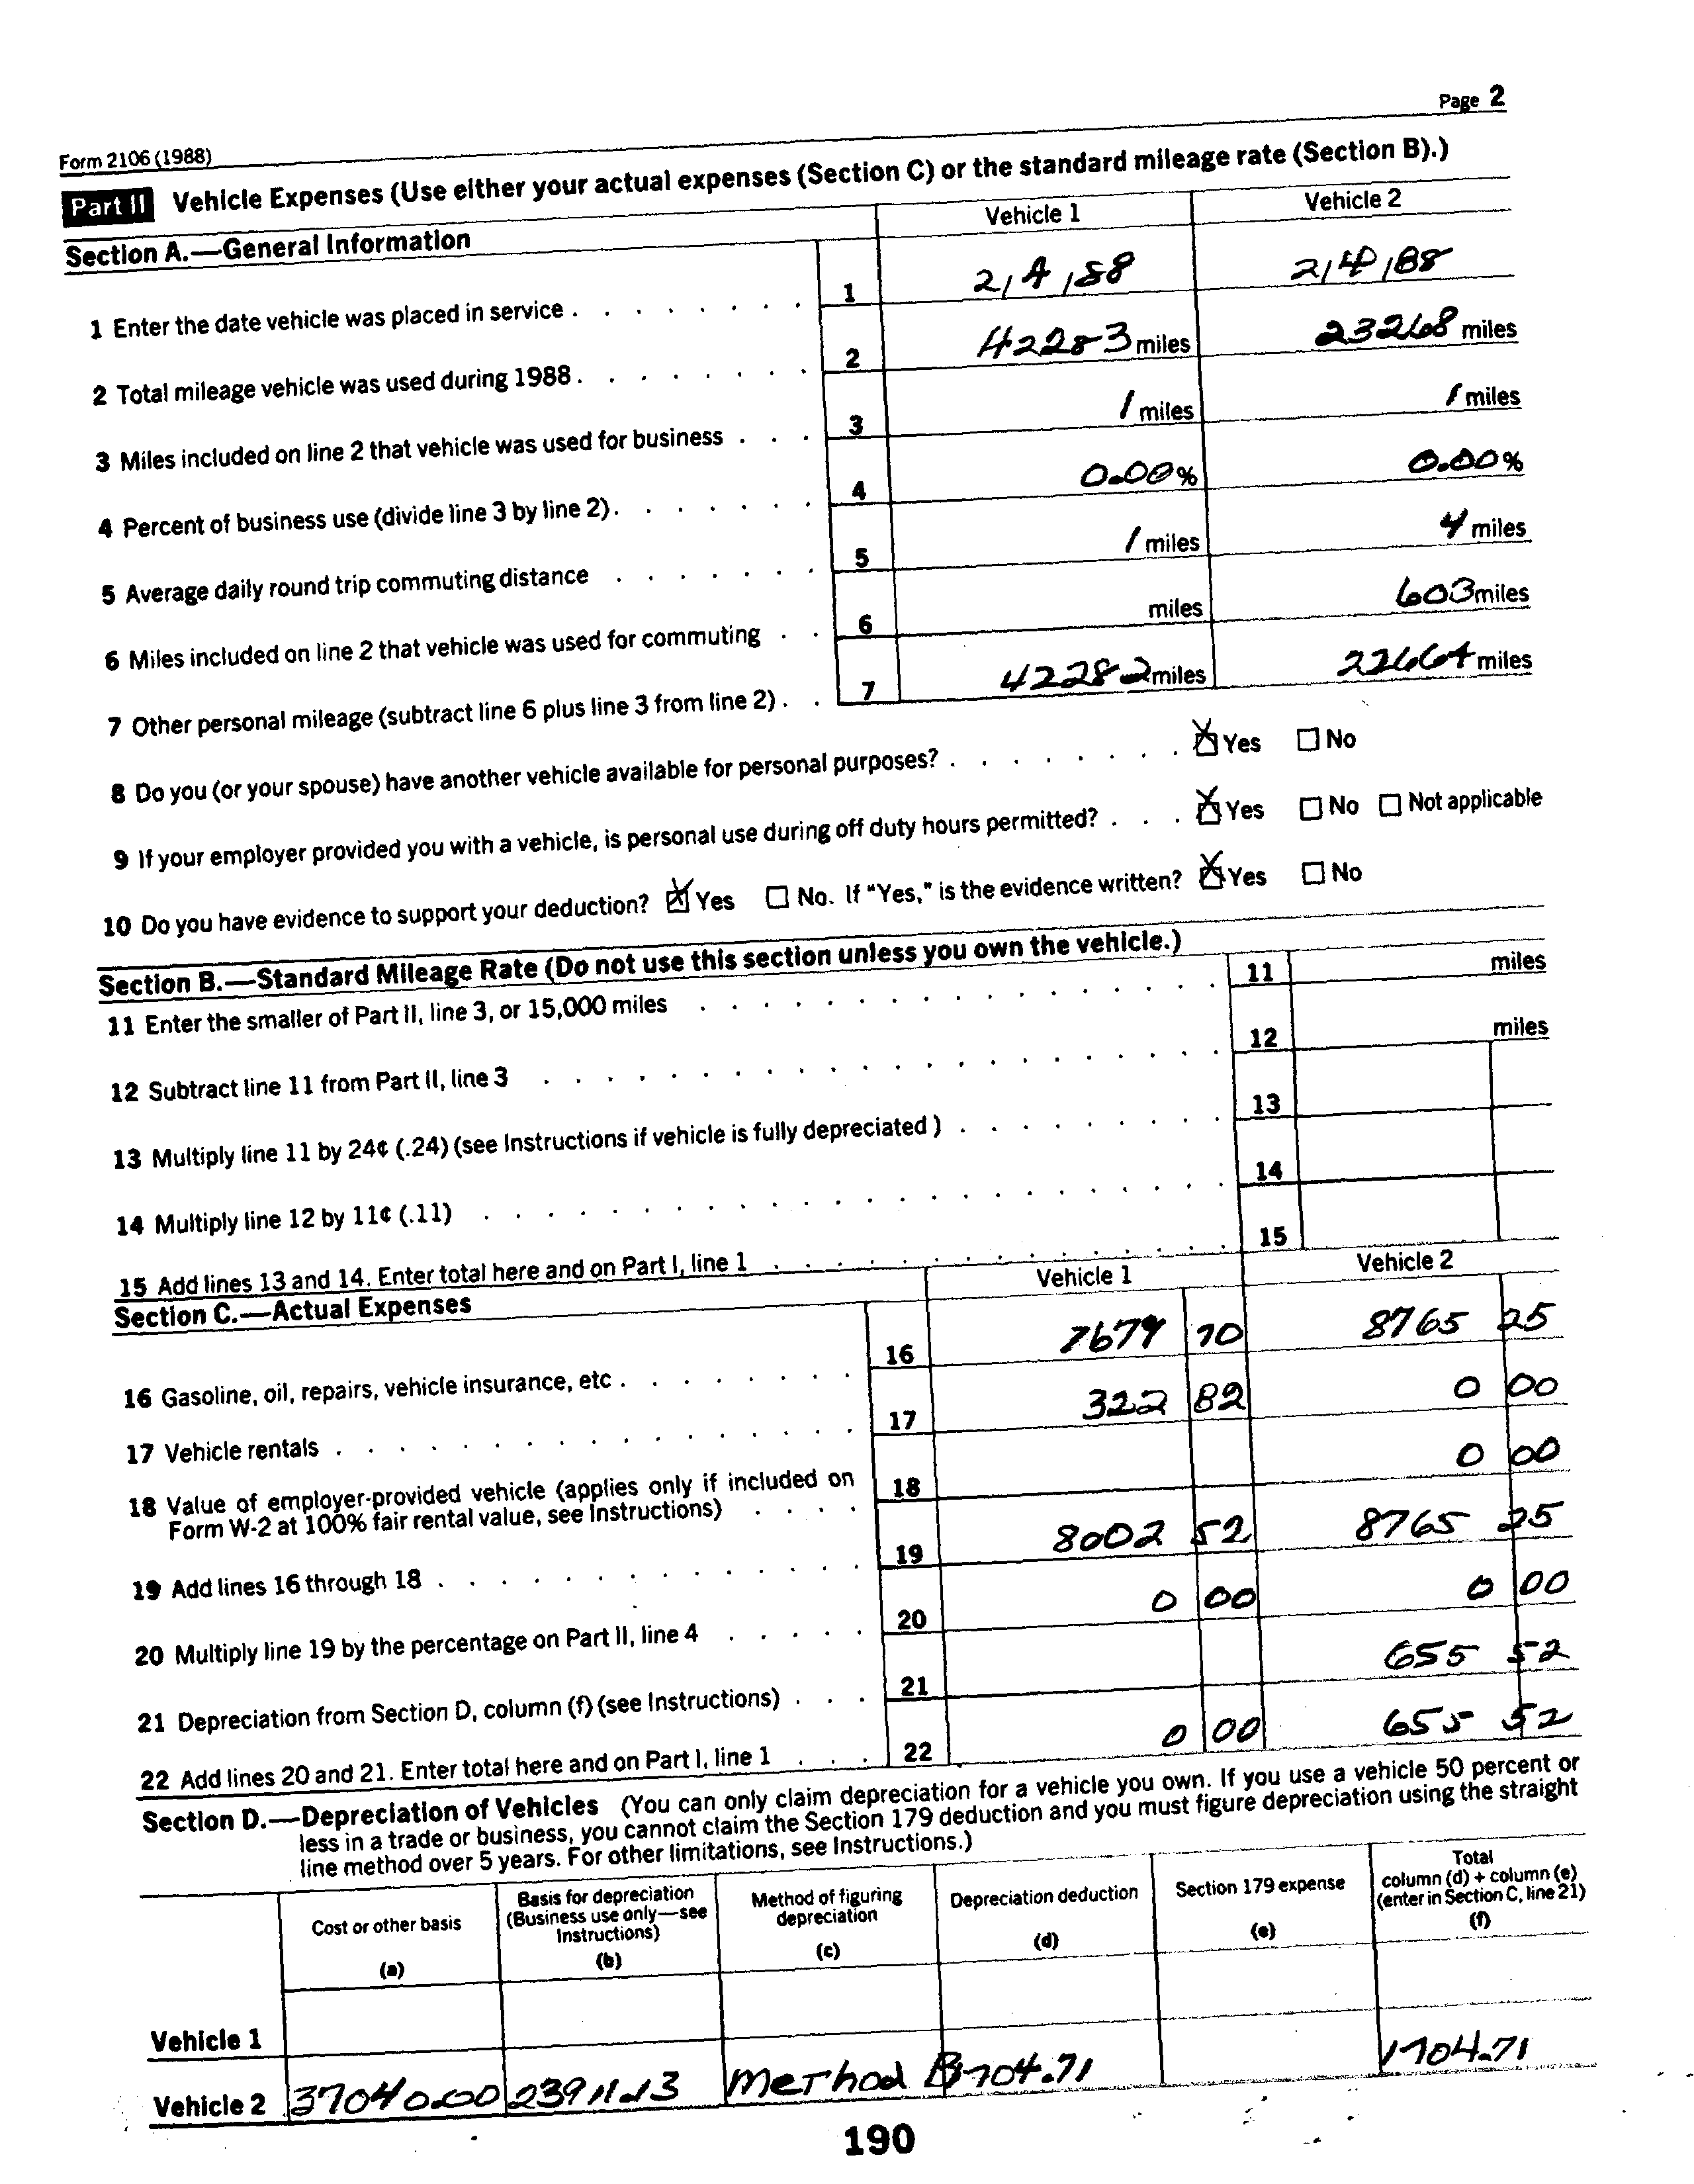 Page 2
Form 2106 (1988)
Part II Vehicle Expenses (Use either your actual expenses (Section C) or the standard mileage rate (Section B).)
Section A.—General Information Vehicle 1 Vehicle 2
1 Enter the date vehicle was placed in service . . . . . . . 1 2/4/88 2/4/88
2 Total mileage vehicle was used during 1988 . . . . . . . 2 42283 miles 23268 miles
3 Miles included on line 2 that vehicle was used for business . . . 3 1 miles 1 miles
4 Percent of business use (divide line 3 by line 2) . . . . . . 4 0.00 % 0.00 %
5 Average daily round trip commuting distance . . . . . . . 5 1 miles 4 miles
6 Miles included on line 2 that vehicle was used for commuting . . 6 miles 603 miles
7 Other personal mileage (subtract line 6 plus line 3 from line 2) . . 7 42282 miles 22664 miles
8 Do you (or your spouse) have another vehicle available for personal purposes? . . . . . . . . X Yes No
9 If your employer provided you with a vehicle, is personal use during off duty hours permitted? . . . X Yes No Not applicable
10 Do you have evidence to support your deduction? X Yes No. If "Yes," is the evidence written? X Yes No
Section B.—Standard Mileage Rate (Do not use this section unless you own the vehicle.)
11 Enter the smaller of Part II, line 3, or 15,000 miles . . . . . . . . . . . . . . . . . 11 miles
12 Subtract line 11 from Part II, line 3 . . . . . . . . . . . . . . . . . . . . . . 12 miles
13 Multiply line 11 by 24¢ (.24) (see Instructions if vehicle is fully depreciated ) . . . . . . . . . 13
14 Multiply line 12 by 11¢ (.11) . . . . . . . . . . . . . . . . . . . . . . . . 14
15 Add lines 13 and 14. Enter total here and on Part I, line 1 . . . . . . . . . . . . . . . 15
Section C.—Actual Expenses Vehicle 1 Vehicle 2
16 Gasoline, oil, repairs, vehicle insurance, etc . . . . . . . . 16 7679 70 8765 25
17 Vehicle rentals . . . . . . . . . . . . . . . . . 17 322 82 0 00
18 Value of employer-provided vehicle (applies only if included on
Form W-2 at 100% fair rental value, see Instructions) . . . . 18 0 00
19 Add lines 16 through 18 . . . . . . . . . . . . . . 19 8002 52 8765 25
20 Multiply line 19 by the percentage on Part II, line 4 . . . . . 20 0 00 0 00
21 Depreciation from Section D, column (f) (see Instructions) . . . 21 655 52
22 Add lines 20 and 21. Enter total here and on Part I, line 1 . . . 22 0 00 655 52
Section D.—Depreciation of Vehicles (You can only claim depreciation for a vehicle you own. If you use a vehicle 50 percent or
less in a trade or business, you cannot claim the Section 179 deduction and you must figure depreciation using the straight
line method over 5 years. For other limitations, see Instructions.)
Cost or other basis (a)
Basis for depreciation (Business use only—see Instructions) (b)
Method of figuring depreciation (c)
Depreciation deduction (d)
Section 179 expense (e)
Total column (d) + column (e) (enter in Section C, line 21) (f)
Vehicle 1
Vehicle 2 37040.00 23911.13 Method B 1704.71 1704.71
190